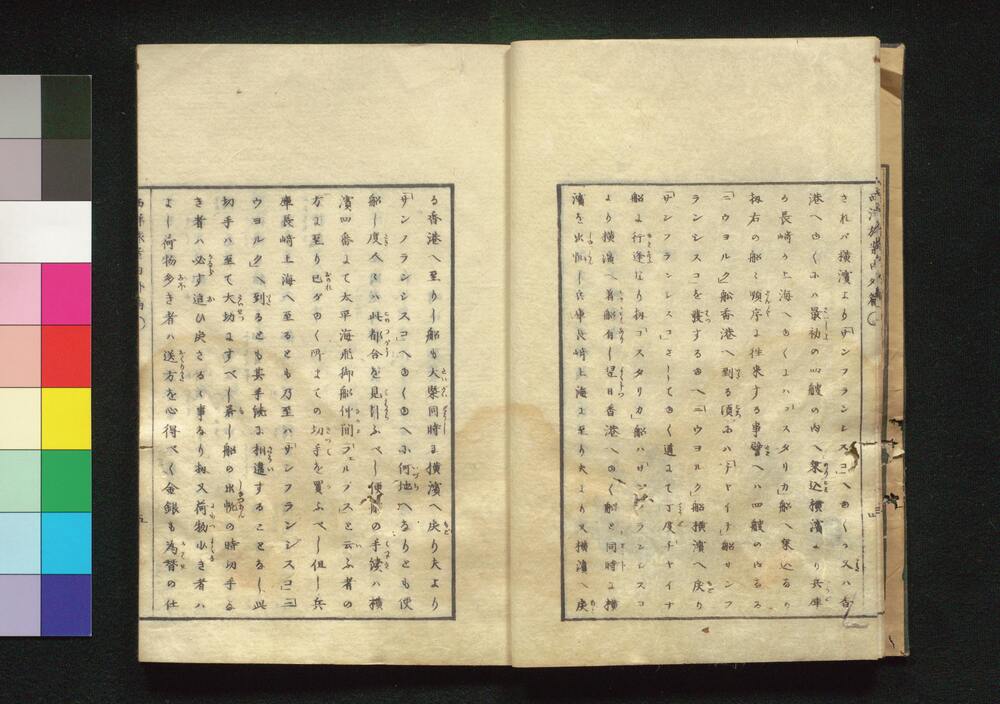 されバ横濱より「サンフランシスコ」へゆくか又ハ香
港へゆくにハ最初の四艘の内へ乗込横濱より兵庫
長崎 上海へゆくにハ「コスタリカ」船へ乗込
扨右の船々順序に往来する事譬へハ四艘の内なる
「ニウヨルク」船香港へ到る頃ハ「チヤイナ」船サンフ
ランシスコを發するゆへ「ニウヨルク」船横濱へ戻り
「サンフランシスコ」さしてゆく道にて丁度チヤイナ
船に行逢なり扨コスタリカ船ハサンフランシスコ
より横濱へ着船有し翌日香港へゆく船と同時に横
濱を出帆し兵庫長崎上海に至り夫より又横濱へ戻
る香港へ至りし船も大槩同時に横濱へ戻り夫より
「サンフランシスコ」へゆくゆへに何地へなりとも便
船し度人々ハ此都合を見計ふべし便船の手續ハ横
濱四番にて太平海飛脚船仲間「フェルプス」と云ふ者の
方に至り己がゆく所までの切手を買ふべし但し兵
庫長崎上海へ至るとも乃至ハ「サンフランシスコ」「ニ
ウヨルク」へ到るとも其手続に相違することなし此
切手ハ至て大切にすべし若し船の出帆の時切手な
き者ハ必す追ひ戻さるゝ事なり扨又荷物少き者ハ
よし荷物多き者ハ送方を心得べく金銀も為替の仕